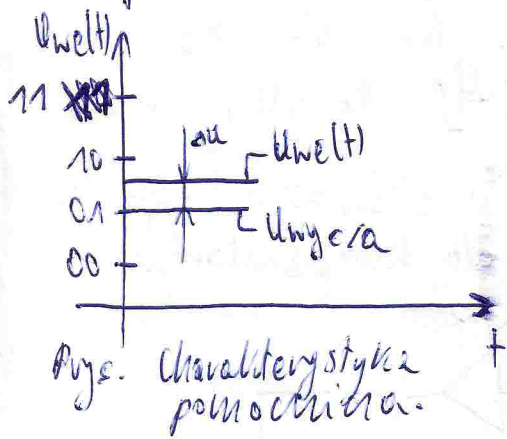 Uwe(t)
11
10
ΔU
Uwe(t)
01
Uwyc/a
00
t
Rys. Charakterystyka
pomocnicza.